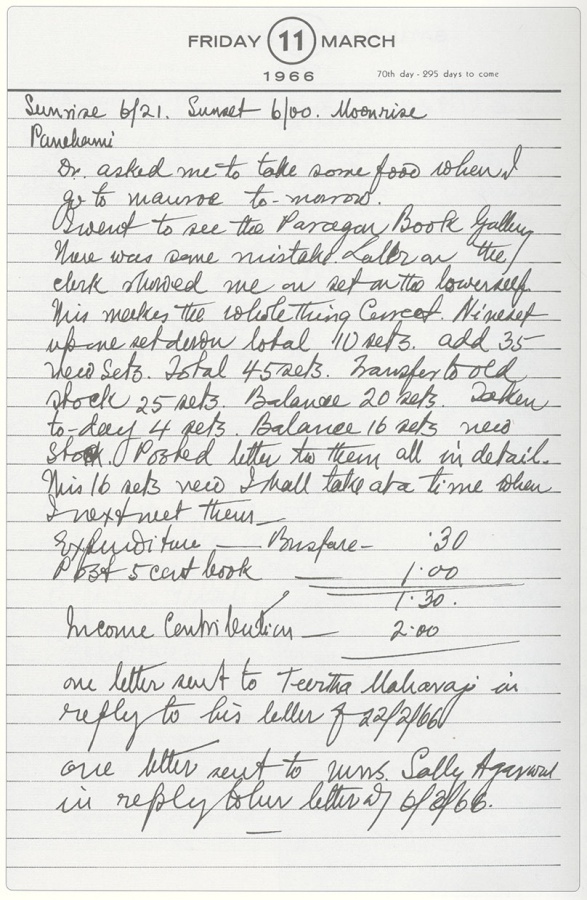 FRIDAY 11 MARCH
1966
70th day - 295 days to come
Sunrise 6/21. Sunset 6/00. Moonrise
Panchami
Dr. asked me to take some food when I
go to to-morrow.
I went to see the Paragon Book Gallery
There was some mistake. Later on the
clerk showed me on set on the lowerself.
This makes the whole thing Correct. Nineset
upone set down total 10 sets. add 35
new sets. Total 45 sets. Transfer to old
stock 25 sets. Balance 20 sets. Taken
to-day 4 sets. Balance 16 sets new
Stock. Posted letter to them all in detail.
This 16 sets new I shall take at a time when
I next meet them—
Expenditure — Busfare — .30
Post 5 cent book — 1.00
1.30.
Income Contribution — 2.00
one letter sent to Teertha Maharaj in
reply to his letter of 22/2/66
one letter sent to mrs. Sally Agarwal
in reply to her letter of 6/3/66.